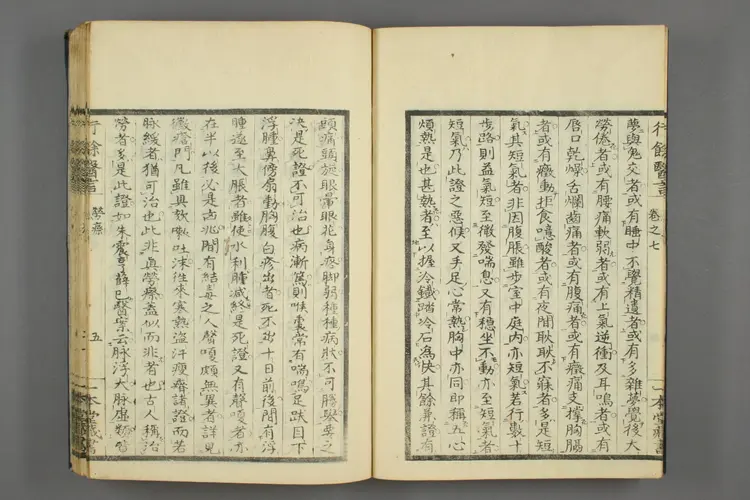 行餘醫言 卷之七
夢與鬼交者或有睡中不覺精遺者或有多雜夢覺後大
勞倦者或有腰痛軟弱者或有上氣逆衝及耳鳴者或有
唇口乾燥舌爛齒痛者或有腹痛者或有癥痛支撐胸膈
者或有癥動拒食噫酸者或有夜間耿耿不寐者多是短
氣其短氣者非因腹脹雖步室中庭内亦短氣若行數十
步路則益氣短至微發喘息又有穩坐不動亦至短氣者
短氣乃此證之惡候又手足心常熱胸中亦同即稱五心
煩熱是也甚熱者至以握冷鐵踏冷石為快其餘兼證有
頭痛頭旋眼暈眼花身疼脚弱種種病狀不可腸擧要之
決是死證不可治也病漸篤則喉囊常有喘鳴足趺目下
浮腫鼻傍扇動胸腹白疹出者死不出十日前後間有浮
腫遂至大脹者雖使水利腫減終是死證又有聲嗄者亦
在半以後必是古兆間有結毒之人聲嗄頗無異者詳見
黴瘡門凡雖具欬嗽吐沫往來寒熱盗汗瘦瘠諸證而若
脉緩者猶可治也此非真勞瘵蓋似而非者也古人稱治
勞者多是此證如朱震亨薛己醫案云脉浮大脉虛數
行餘醫言
勞瘵
五
一本堂藏書